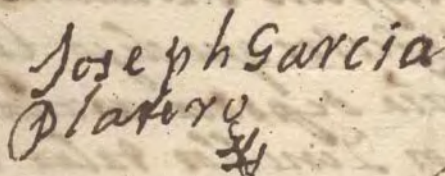 Joseph Garcia
Platero